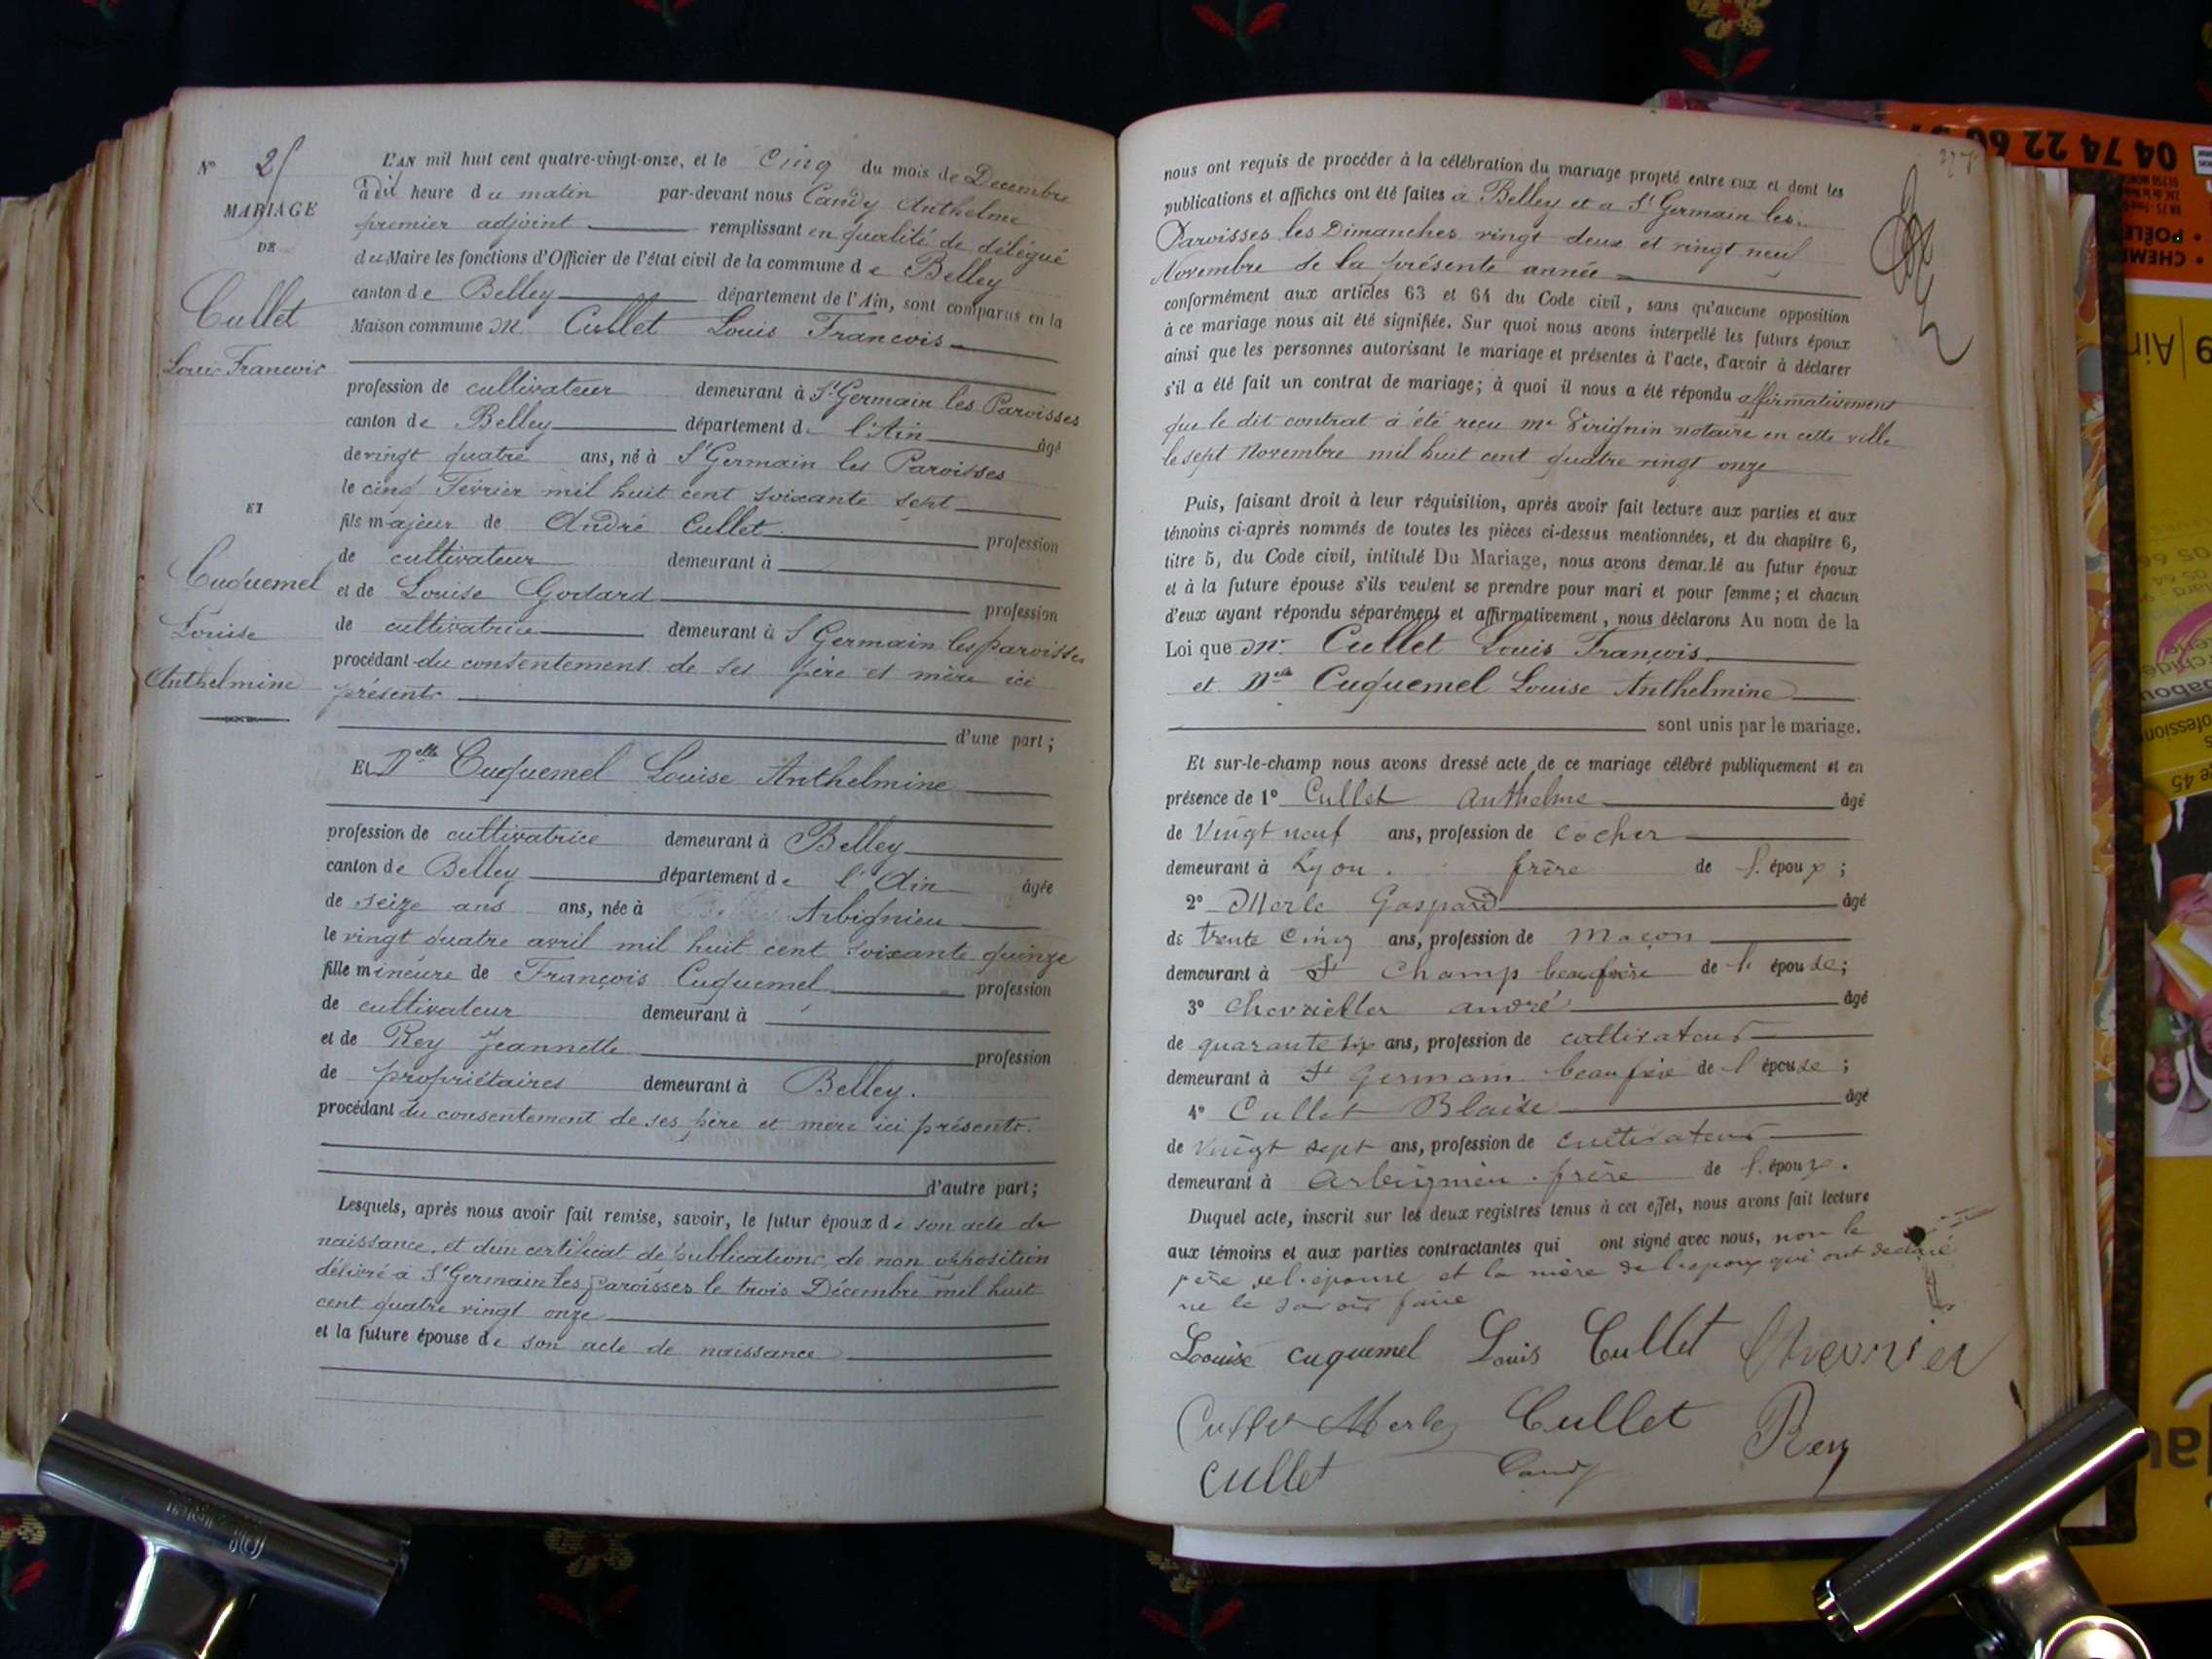 N° 25
MARIAGE
DE
Cullet
Louis Francois
ET
Cuquemel
Louise
Anthelmine
L'AN mil huit cent quatre-vingt-onze, et le Cinq du mois de Decembre
à dix heure du matin par-devant nous Candy Anthelme
premier adjoint remplissant en qualité de délégué
du Maire les fonctions d'Officier de l'état civil de la commune de Belley
canton de Belley département de l'Ain, sont comparus en la
Maison commune M Cullet Louis Francois
profession de cultivateur demeurant à St Germain les Paroisses
canton de Belley département de l'Ain âgé
de vingt quatre ans, né à St Germain les Paroisses
le cinq Février mil huit cent soixante sept
fils majeur de André Cullet profession
de cultivateur demeurant à
et de Louise Godard profession
de cultivatrice demeurant à St Germain les paroisses
procédant du consentement de ses père et mère ici
présents
d'une part;
Et Delle Cuquemel Louise Anthelmine
profession de cultivatrice demeurant à Belley
canton de Belley département de l'Ain âgée
de seize ans ans, née à Arbignieu
le vingt quatre avril mil huit cent soixante quinze
fille mineure de François Cuquemel profession
de cultivateur demeurant à
et de Rey Jeannette profession
de propriétaires demeurant à Belley.
procédant du consentement de ses père et mère ici présents.
d'autre part;
Lesquels, après nous avoir fait remise, savoir, le futur époux de son acte de
naissance, et d'un certificat de publications, de non opposition
délivré à St Germain les paroisses le trois Décembre mil huit
cent quatre vingt onze
et la future épouse de son acte de naissance
nous ont requis de procéder à la célébration du mariage projeté entre eux et dont les
publications et affiches ont été faites à Belley et a St Germain les
Paroisses les Dimanches vingt deux et vingt neuf
Novembre de la présente année
conformément aux articles 63 et 64 du Code civil, sans qu'aucune opposition
à ce mariage nous ait été signifiée. Sur quoi nous avons interpellé les futurs époux
ainsi que les personnes autorisant le mariage et présentes à l'acte, d'avoir à déclarer
s'il a été fait un contrat de mariage; à quoi il nous a été répondu affirmativement
que le dit contrat à été reçu me Virignin notaire en cette ville
le sept Novembre mil huit cent quatre vingt onze
Puis, faisant droit à leur réquisition, après avoir fait lecture aux parties et aux
témoins ci-après nommés de toutes les pièces ci-dessus mentionnées, et du chapitre 6,
titre 5, du Code civil, intitulé Du Mariage, nous avons demandé au futur époux
et à la future épouse s'ils veulent se prendre pour mari et pour femme; et chacun
d'eux ayant répondu séparément et affirmativement, nous déclarons Au nom de la
Loi que Mr Cullet Louis François
et Delle Cuquemel Louise Anthelmine
sont unis par le mariage.
Et sur-le-champ nous avons dressé acte de ce mariage célébré publiquement et en
présence de 1° Cullet Anthelme âgé
de Vingt neuf ans, profession de cocher
demeurant à Lyon. frère de l'époux;
2° Merle Gaspard âgé
de trente cinq ans, profession de maçon
demeurant à St Champ beaufrère de l'épouse;
3° Chevriller andré âgé
de quarante six ans, profession de cultivateur
demeurant à St Germain beaufrère de l'épouse;
4° Cullet Blaise âgé
de Vingt sept ans, profession de cultivateur
demeurant à Arbignieu. frère de l'époux.
Duquel acte, inscrit sur les deux registres tenus à cet effet, nous avons fait lecture
aux témoins et aux parties contractantes qui ont signé avec nous, non le
père de l'épouse et la mère de l'époux qui ont declaré
ne le savoir faire
Louise cuquemel Louis Cullet
Merle Cullet Rey
Cullet Candy
04 74 22 60
Ain